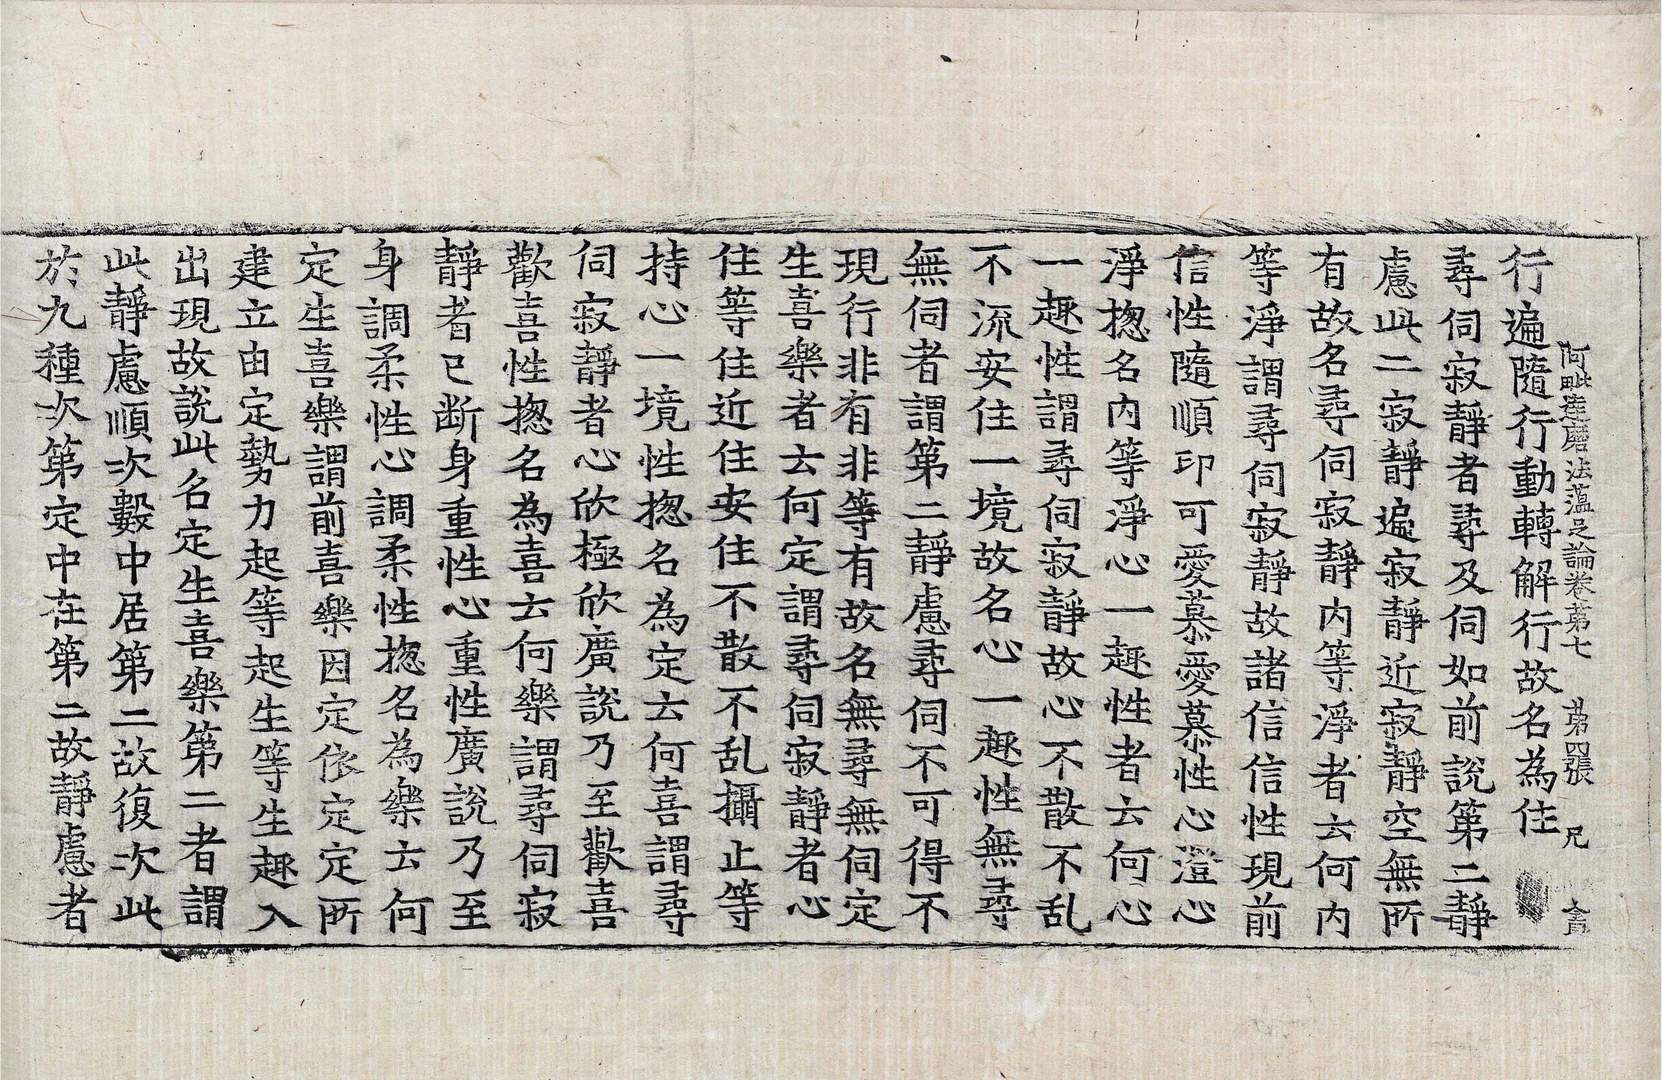 阿毗達磨法蕴足論卷苐七　苐四張　兄
行遍隨行動轉解行故名為住
尋伺寂靜者尋及伺如前說第二靜
慮此二寂靜遍寂靜近寂靜空無所
有故名尋伺寂靜内等淨者云何内
等淨謂尋伺寂靜故諸信信性現前
信性隨順印可愛慕愛慕性心澄心
淨揔名内等淨心一趣性者云何心
一趣性謂尋伺寂靜故心不散不乱
不流安住一境故名心一趣性無尋
無伺者謂第二靜慮尋伺不可得不
現行非有非等有故名無尋無伺定
生喜樂者云何定謂尋伺寂靜者心
住等住近住安住不散不乱攝止等
持心一境性揔名為定云何喜謂尋
伺寂靜者心欣極欣廣說乃至歡喜
歡喜性揔名為喜云何樂謂尋伺寂
靜者已断身重性心重性廣說乃至
身調柔性心調柔性揔名為樂云何
定生喜樂謂前喜樂因定依定定所
建立由定勢力起等起生等生趣入
出現故說此名定生喜樂第二者謂
此靜慮順次數中居第二故復次此
於九種次第定中在第二故靜慮者